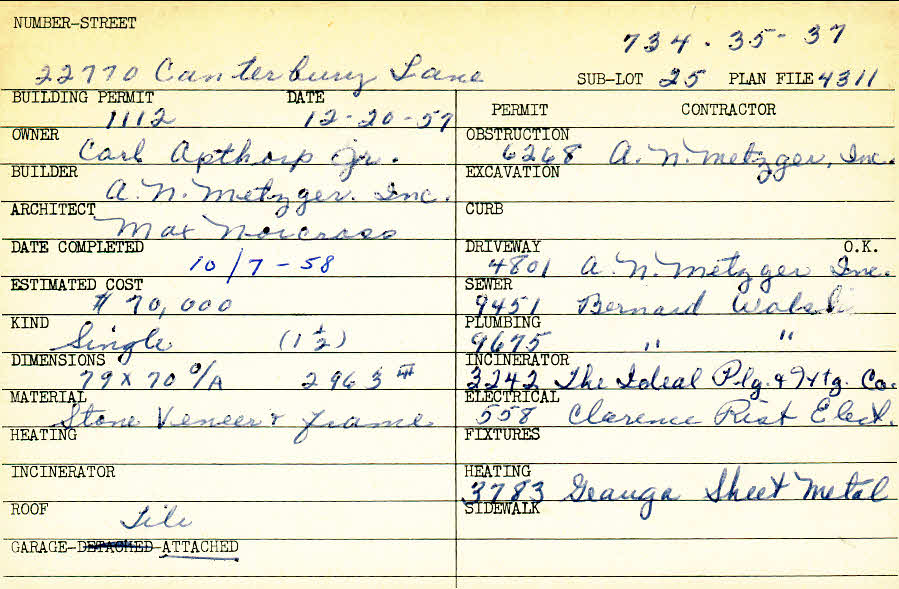 NUMBER-STREET
734-35-37
22770 Canterbury Lane
SUB-LOT 25 PLAN FILE 4311
BUILDING PERMIT DATE
1112 12-20-57
PERMIT CONTRACTOR
OWNER
Carl Apthorp Jr.
BUILDER
A. N. Metzger. Inc.
ARCHITECT
Max Norcross
DATE COMPLETED
10/7-58
ESTIMATED COST
$ 70,000
KIND
Single (1 1/2)
DIMENSIONS
79 x 70 O/A 2963
MATERIAL
Stone Veneer & frame
HEATING
INCINERATOR
ROOF
Tile
GARAGE-DETACHED-ATTACHED
OBSTRUCTION
6268 A. N. Metzger, Inc.
EXCAVATION
CURB
DRIVEWAY O.K.
4801 A. N. Metzger Inc.
SEWER
9451 Bernard
PLUMBING
9675 " "
INCINERATOR
3242 The Ideal Plg. & Htg. Co.
ELECTRICAL
558 Clarence Rist Elect.
FIXTURES
HEATING
3783 Geauga Sheet Metal
SIDEWALK